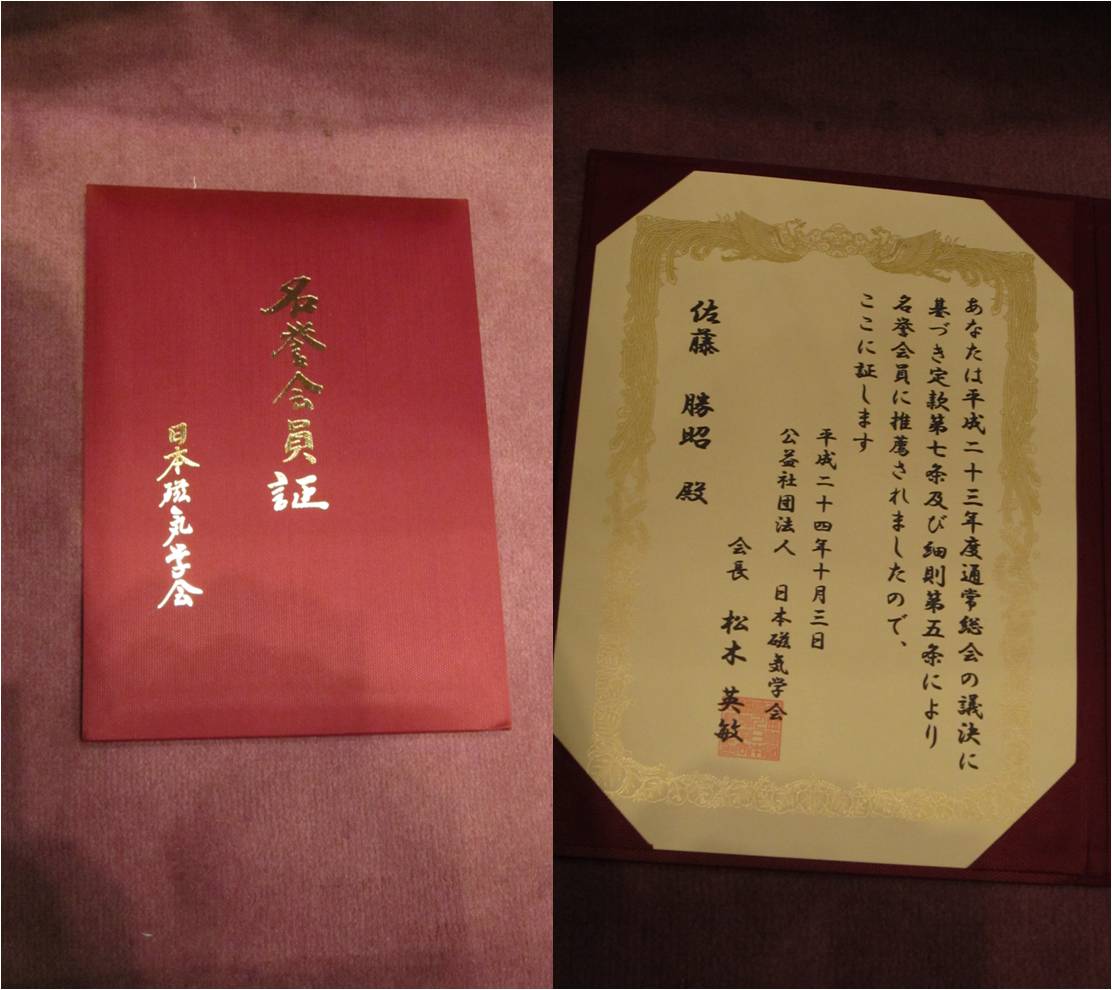 名誉会員証
日本磁気学会
あなたは平成二十三年度通常総会の議決に
基づき定款第七条及び細則第五条により
名誉会員に推薦されましたので、
ここに証します
平成二十四年十月三日
公益社団法人 日本磁気学会
会長 松木 英敏
佐藤 勝昭 殿